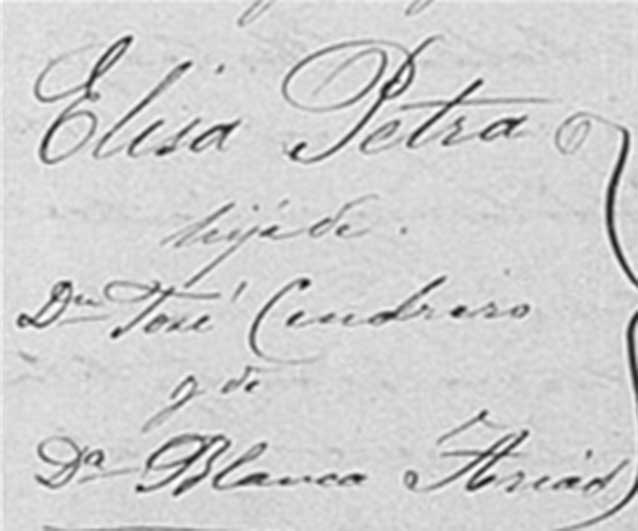 Elisa Petra
hija de.
Dn José Cendrero
y de
Da Blanca Arias